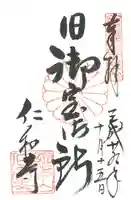 奉拝
平成十九年
十月十五日
旧御室御所
仁和寺